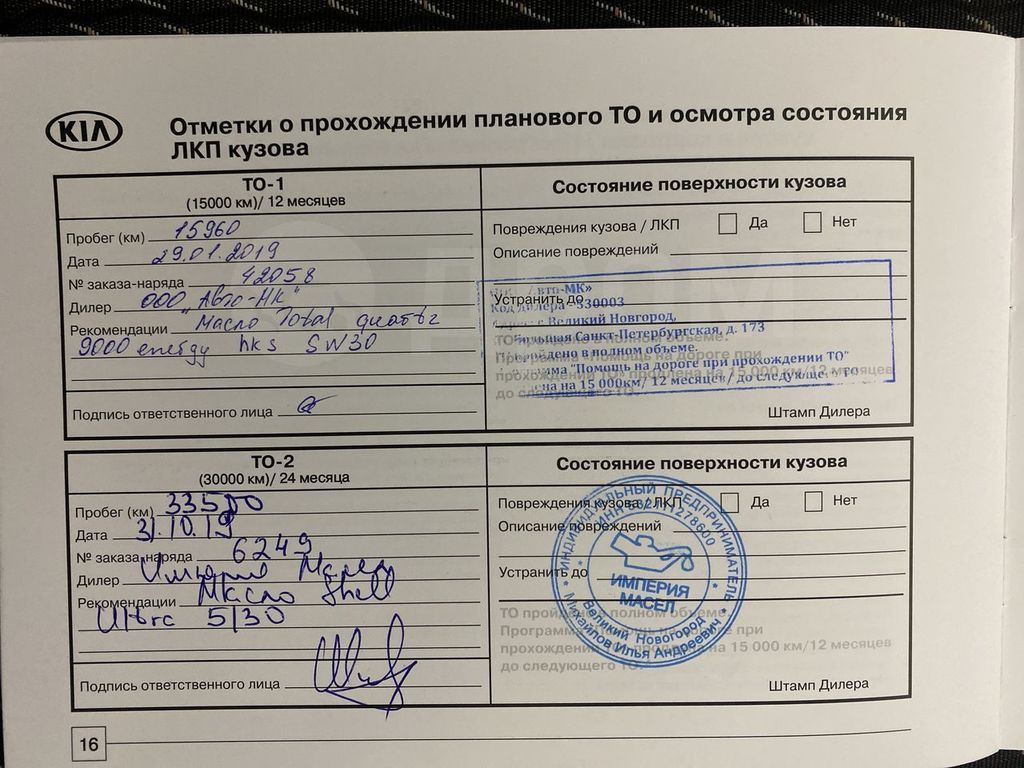 KIA
Отметки о прохождении планового ТО и осмотра состояния
ЛКП кузова
ТО-1
(15000 км)/ 12 месяцев
Пробег (км) 15960
Дата 29.01.2019
№ заказа-наряда 42058
Дилер ООО „Авто-МК"
Рекомендации Масло Total
9000 energy hks 5W30
Подпись ответственного лица
Состояние поверхности кузова
Повреждения кузова / ЛКП Да Нет
Описание повреждений
Устранить до
Авто-МК»
Код дилера - 530003
Великий Новгород,
Большая Санкт-Петербургская, д. 173
ТО пройдено в полном объеме.
Программа "Помощь на дороге при прохождении ТО"
на 15 000км/ 12 месяцев/ до следующего ТО
ТО пройдено в полном объеме.
Программа «Помощь на дороге при
прохождении ТО» продлена на 15 000 км/12 месяцев
до следующего ТО.
Штамп Дилера
ТО-2
(30000 км)/ 24 месяца
Пробег (км) 33500
Дата 31.10.19
№ заказа-наряда 6249
Дилер Империя Масел
Рекомендации Масло Shell
Ultra 5/30
Подпись ответственного лица
Состояние поверхности кузова
Повреждения кузова / ЛКП Да Нет
Описание повреждений
Устранить до
ИНДИВИДУАЛЬНЫЙ ПРЕДПРИНИМАТЕЛЬ
ИМПЕРИЯ
МАСЕЛ
Великий Новгород
Михайлов Илья Андреевич
ТО пройдено в полном объеме.
Программа
прохождении на 15 000 км/12 месяцев
до следующего ТО.
Штамп Дилера
16